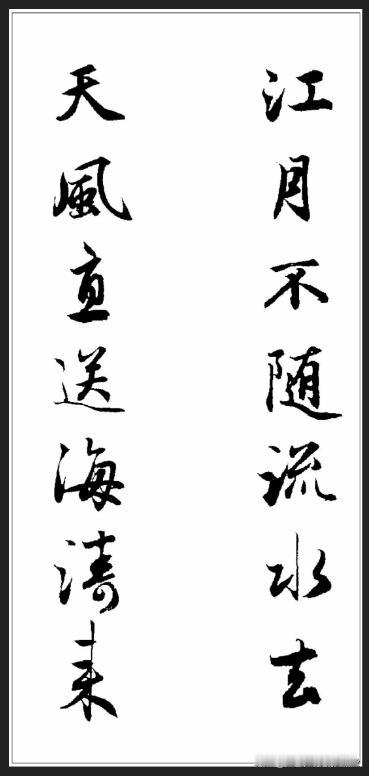 江月不随流水去
天風直送海濤来